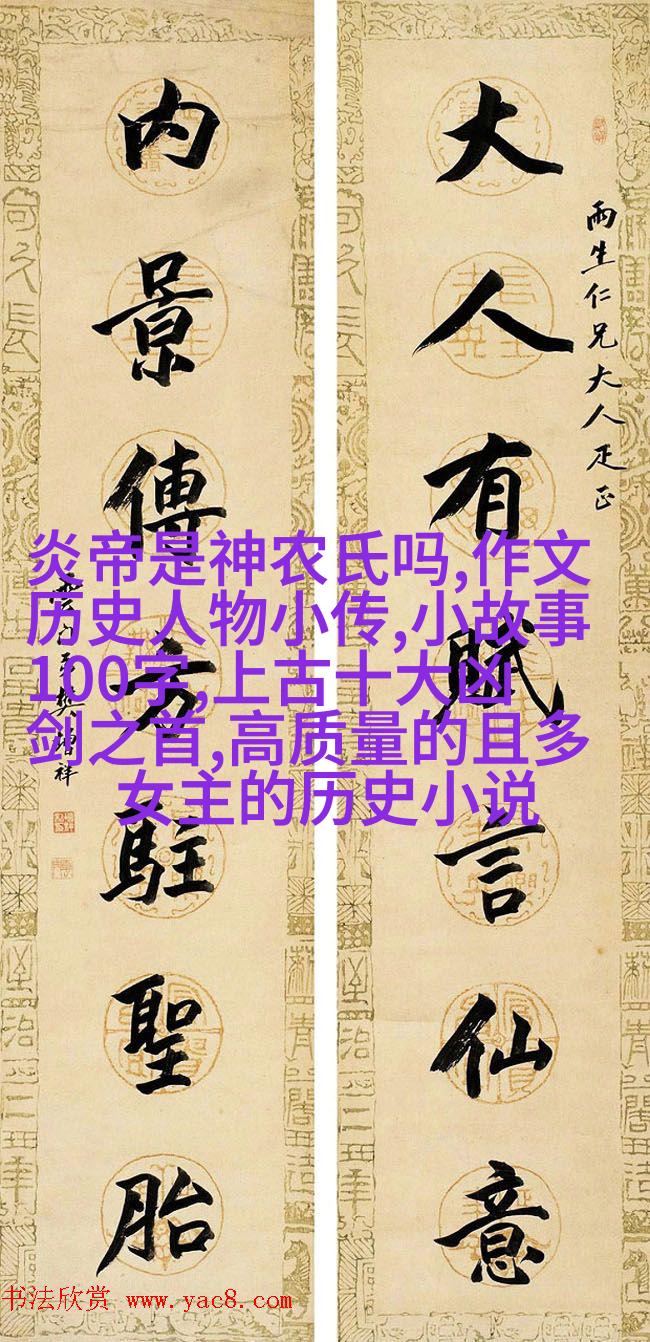 大人有賦言仙意
雨生仁兄大人疋正
內景傳方駐聖胎
雲門弟樊增祥
炎帝是神农氏吗,作文
历史人物小传,小故事
100字,上古十大凶
剑之首,高质量的且多
女主的历史小说
书法欣赏 www.yac8.com